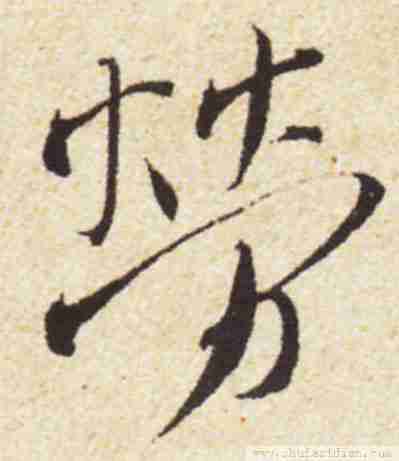 勞
www.shufazidian.com